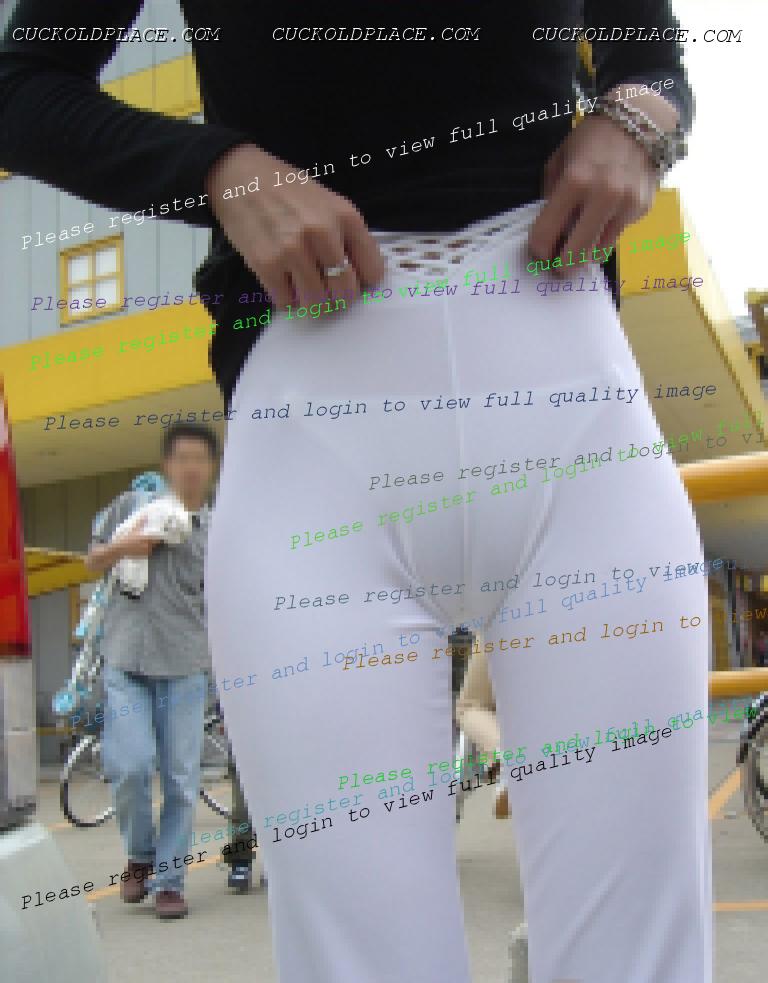 CUCKOLDPLACE.COM CUCKOLDPLACE.COM CUCKOLDPLACE.COM
Please register and login to view full quality image
Please register and login to view full quality image
Please register and login to view full quality image
Please register and login to view full quality image
Please register and login to vi
Please register and login to view full
Please register and login to view
Please register and login to view full quality image
Please register and login to view
Please register and login to view
Please register and login to view full quality
Please register and login to view full quality image